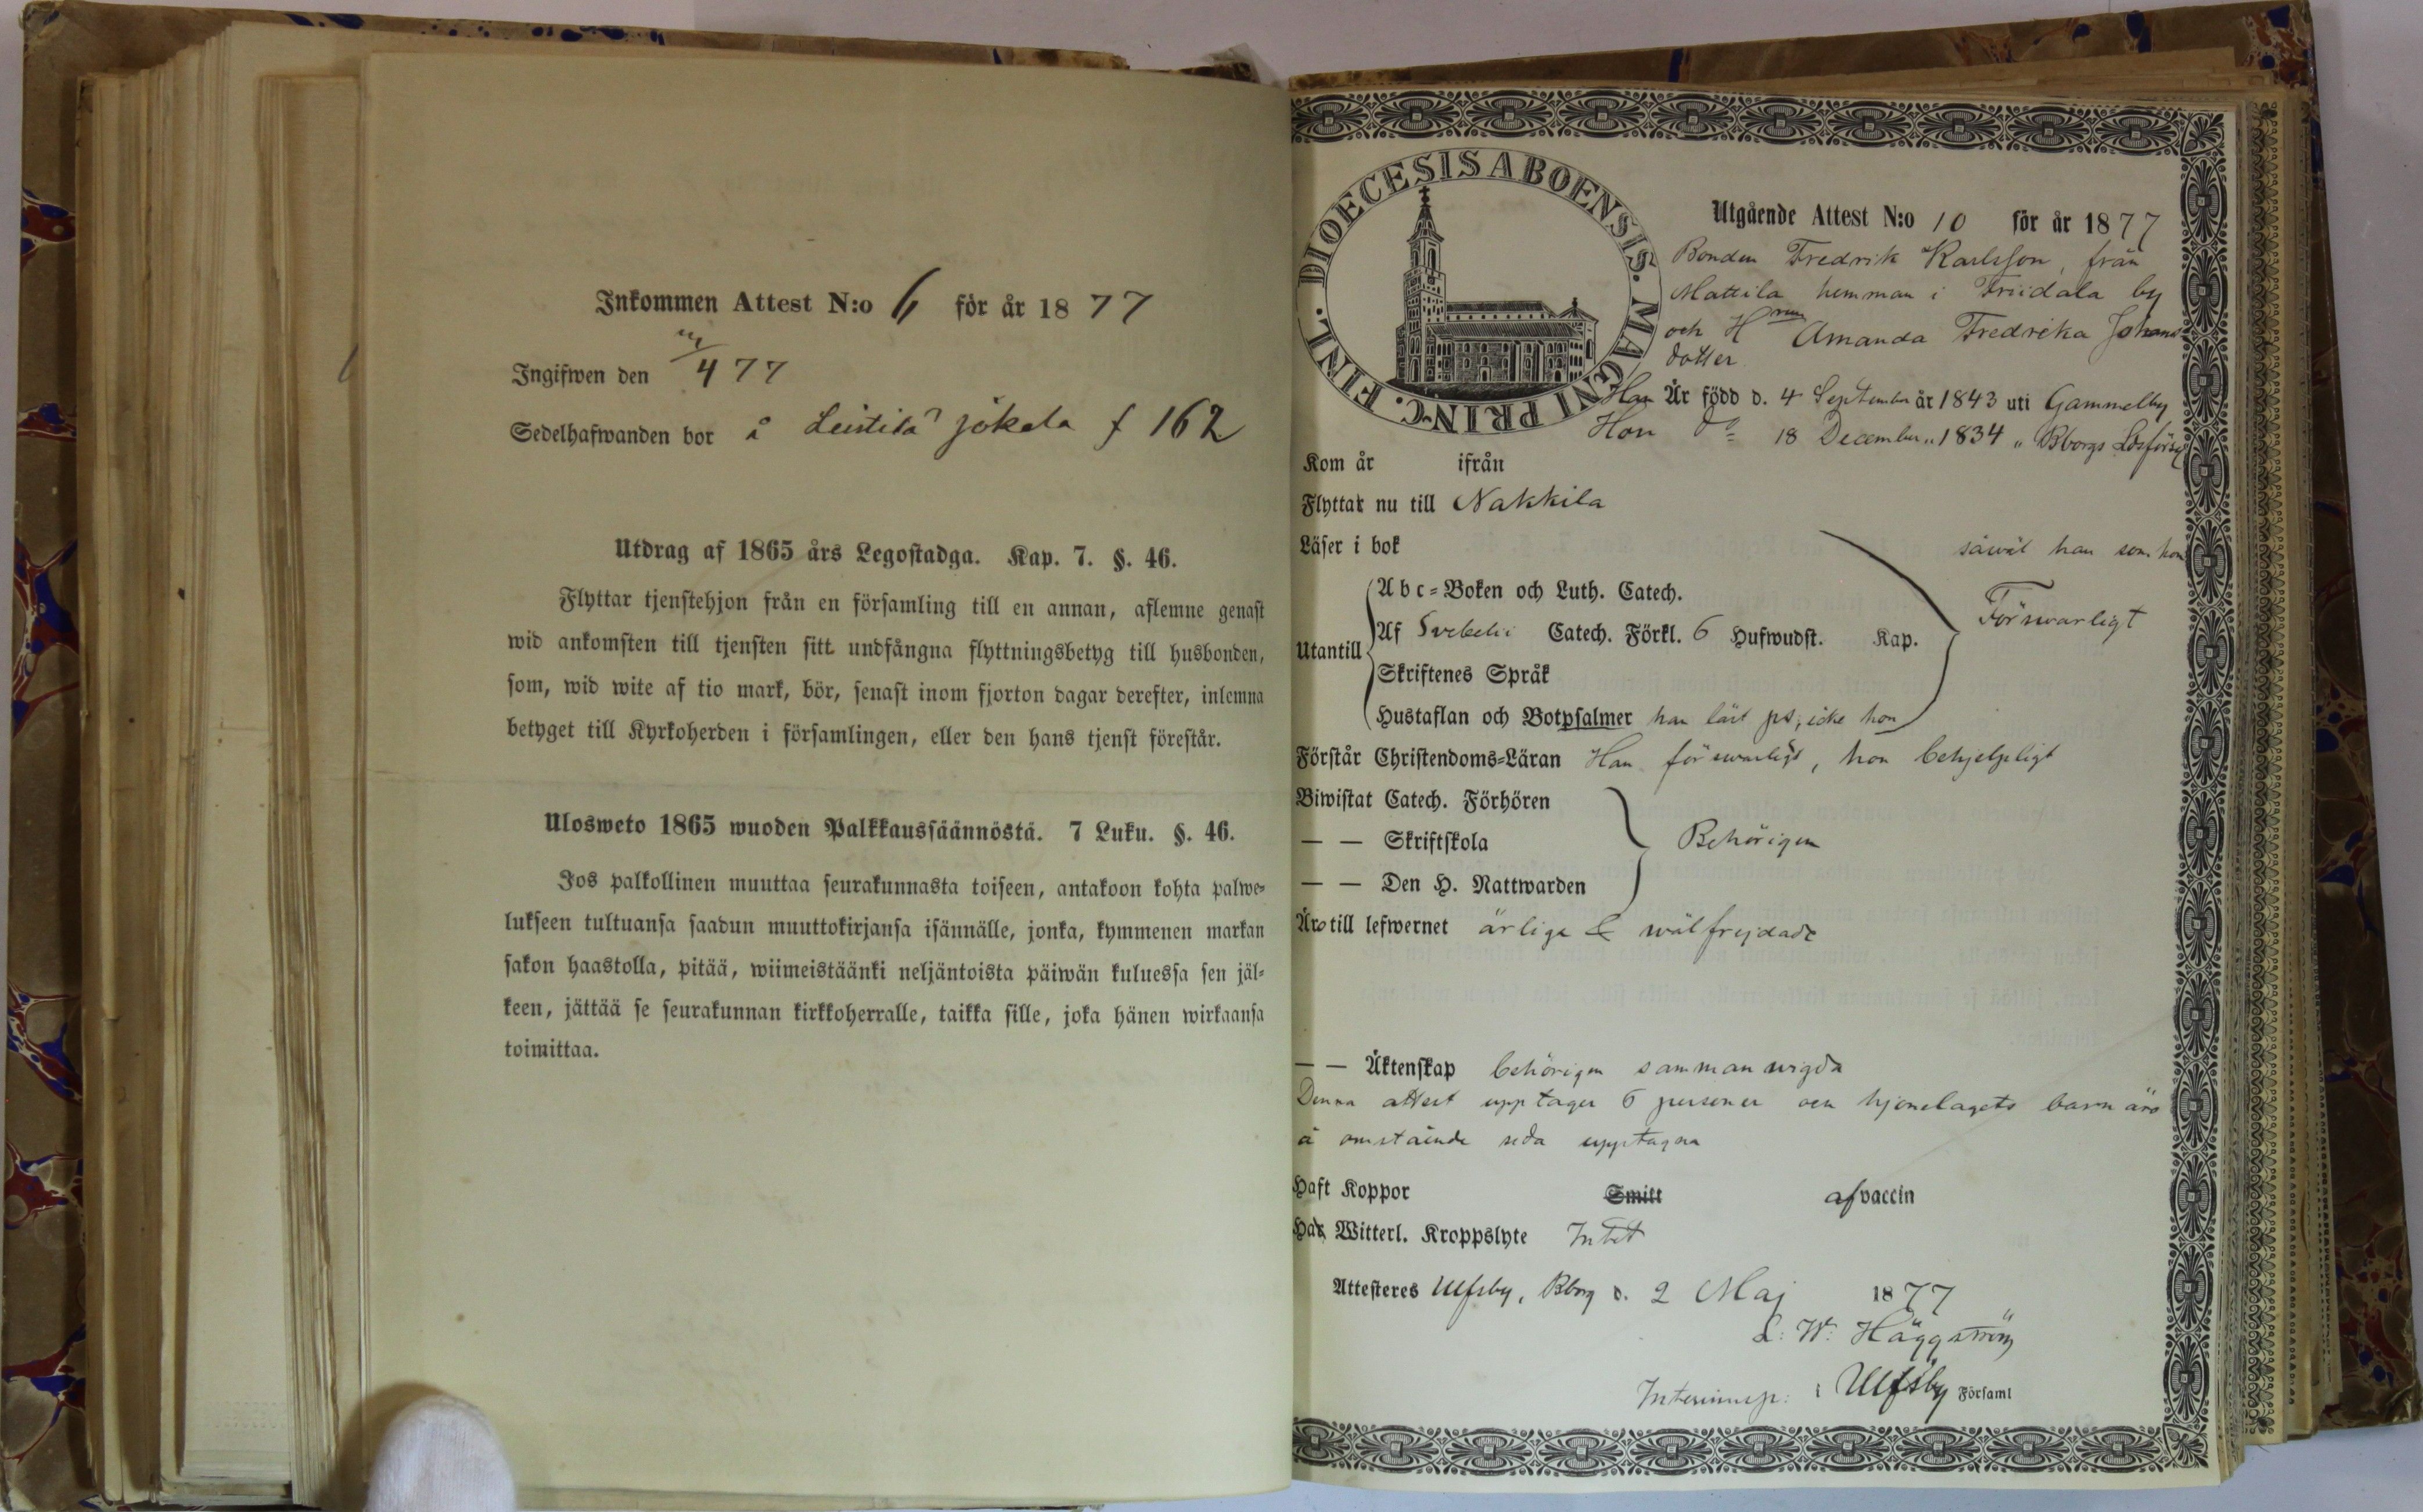 Inkommen Attest N:o 6 för år 1877
Ingifwen den 4 77
Sedelhafwanden bor å Leistilä Jokela f 162
Utdrag af 1865 års Legostadga. Kap. 7. §. 46.
Flyttar tjenstehjon från en församling till en annan, aflemne genast
wid ankomsten till tjensten sitt undfångna flyttningsbetyg till husbonden,
som, wid wite af tio mark, bör, senast inom fjorton dagar derefter, inlemna
betyget till Kyrkoherden i församlingen, eller den hans tjenst förestår.
Ulosweto 1865 wuoden Palkkaussäännöstä. 7 Luku. §. 46.
Jos palkollinen muuttaa seurakunnasta toiseen, antakoon kohta palwe-
lukseen tultuansa saadun muuttokirjansa isännälle, jonka, kymmenen markan
sakon haastolla, pitää, wiimeistäänki neljäntoista päiwän kuluessa sen jäl-
keen, jättää se seurakunnan kirkkoherralle, taikka sille, joka hänen wirkaansa
toimittaa.
DIOECESIS ABOENSIS. MAGNI PRINC. FINL.
Utgående Attest N:o 10 för år 1877
Bonden Fredrik Karlsson, från
Mattila hemman i Friidala by
och Hrun Amanda Fredrika Johans-
dotter
Han Är född d. 4 September år 1843 uti Gammelby
Hon do 18 December " 1834 " Bborgs Lösförs
Kom år ifrån
Flyttar nu till Nakkila
Läser i bok såwäl han som hon
Abc-Boken och Luth. Catech.
Förswarligt
Utantill Af Svebelii Catech. Förkl. 6 Hufwudst. Kap.
Skriftenes Språk
Hustaflan och Botpsalmer han läst ps, icke hon
Förstår Christendoms-Läran Han förswarligt, hon behjelpligt
Biwistat Catech. Förhören
— — Skriftskola Behörigen
— — Den H. Nattwarden
Äro till lefwernet ärliga & wälfrejdade
— — Äktenskap behörigen sammanwigda
Denna attest upptager 6 personer och hjonelagets barn äro
å omstående sida upptagna
Haft Koppor Smitt af vaccin
Har Witterl. Kroppslyte Intet
Attesteres Ulfsby, Bborg d. 2 Maj 1877
L: W: Häggström
Interimsp: i Ulfsby Församl